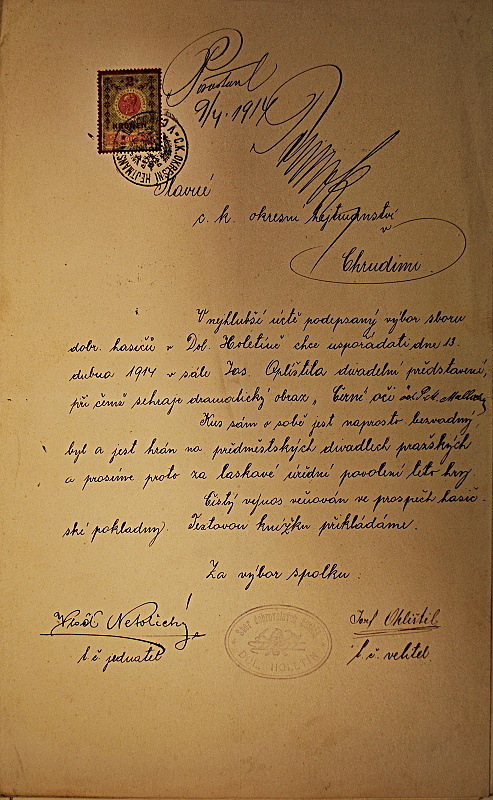 9/4. 1914
C. K. OKRESNÍ HEJTMANS
Slavné
c. k. okresní hejtmanství
v
Chrudimi.
V nejhlubší úctě podepsaný výbor sboru
dobr. hasičů v Dol. Holetíně chce uspořádati dne 13.
dubna 1914 v sále Jos. Ohlištila divadelní představení,
při čemž sehraje dramatický obraz „Černé oči od
Kus sám o sobě jest naprosto bezvadný,
byl a jest hrán na předměstských divadlech pražských
a prosíme proto za laskavé úřední povolení této hry.
Čistý výnos věnován ve prospěch hasič-
ské pokladny. Textovou knížku přikládáme.
Za výbor spolku:
Netolický,
Josef Ohlištil
t. č. jednatel
DOL. HOLETÍN
t. č. velitel.